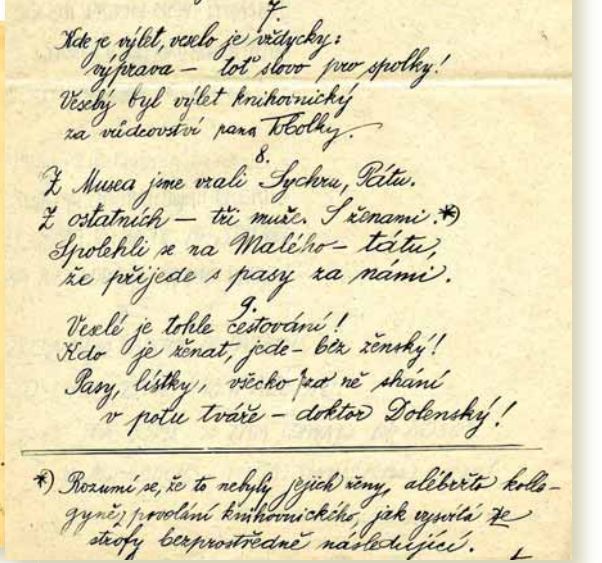 7.
Kde je výlet, veselo je vždycky:
výprava — toť slovo pro spolky!
Veselý byl výlet knihovnický
za vůdcovství pana Tobolky.
8.
Z Musea jsme vzali Sychru, Pátu.
Z ostatních — tři muže. S ženami.*)
Spolehli se na Malého — tátu,
že přijede s pasy za námi.
9.
Veselé je tohle cestování!
Kdo je ženat, jede — bez ženský!
Pasy, lístky, všecko za ně shání
v potu tváře — doktor Dolenský!
*) Rozumí se, že to nebyly jejich ženy, alébržto kolle-
gyně z povolání knihovnického, jak vysvítá ze
strofy bezprostředně následující.